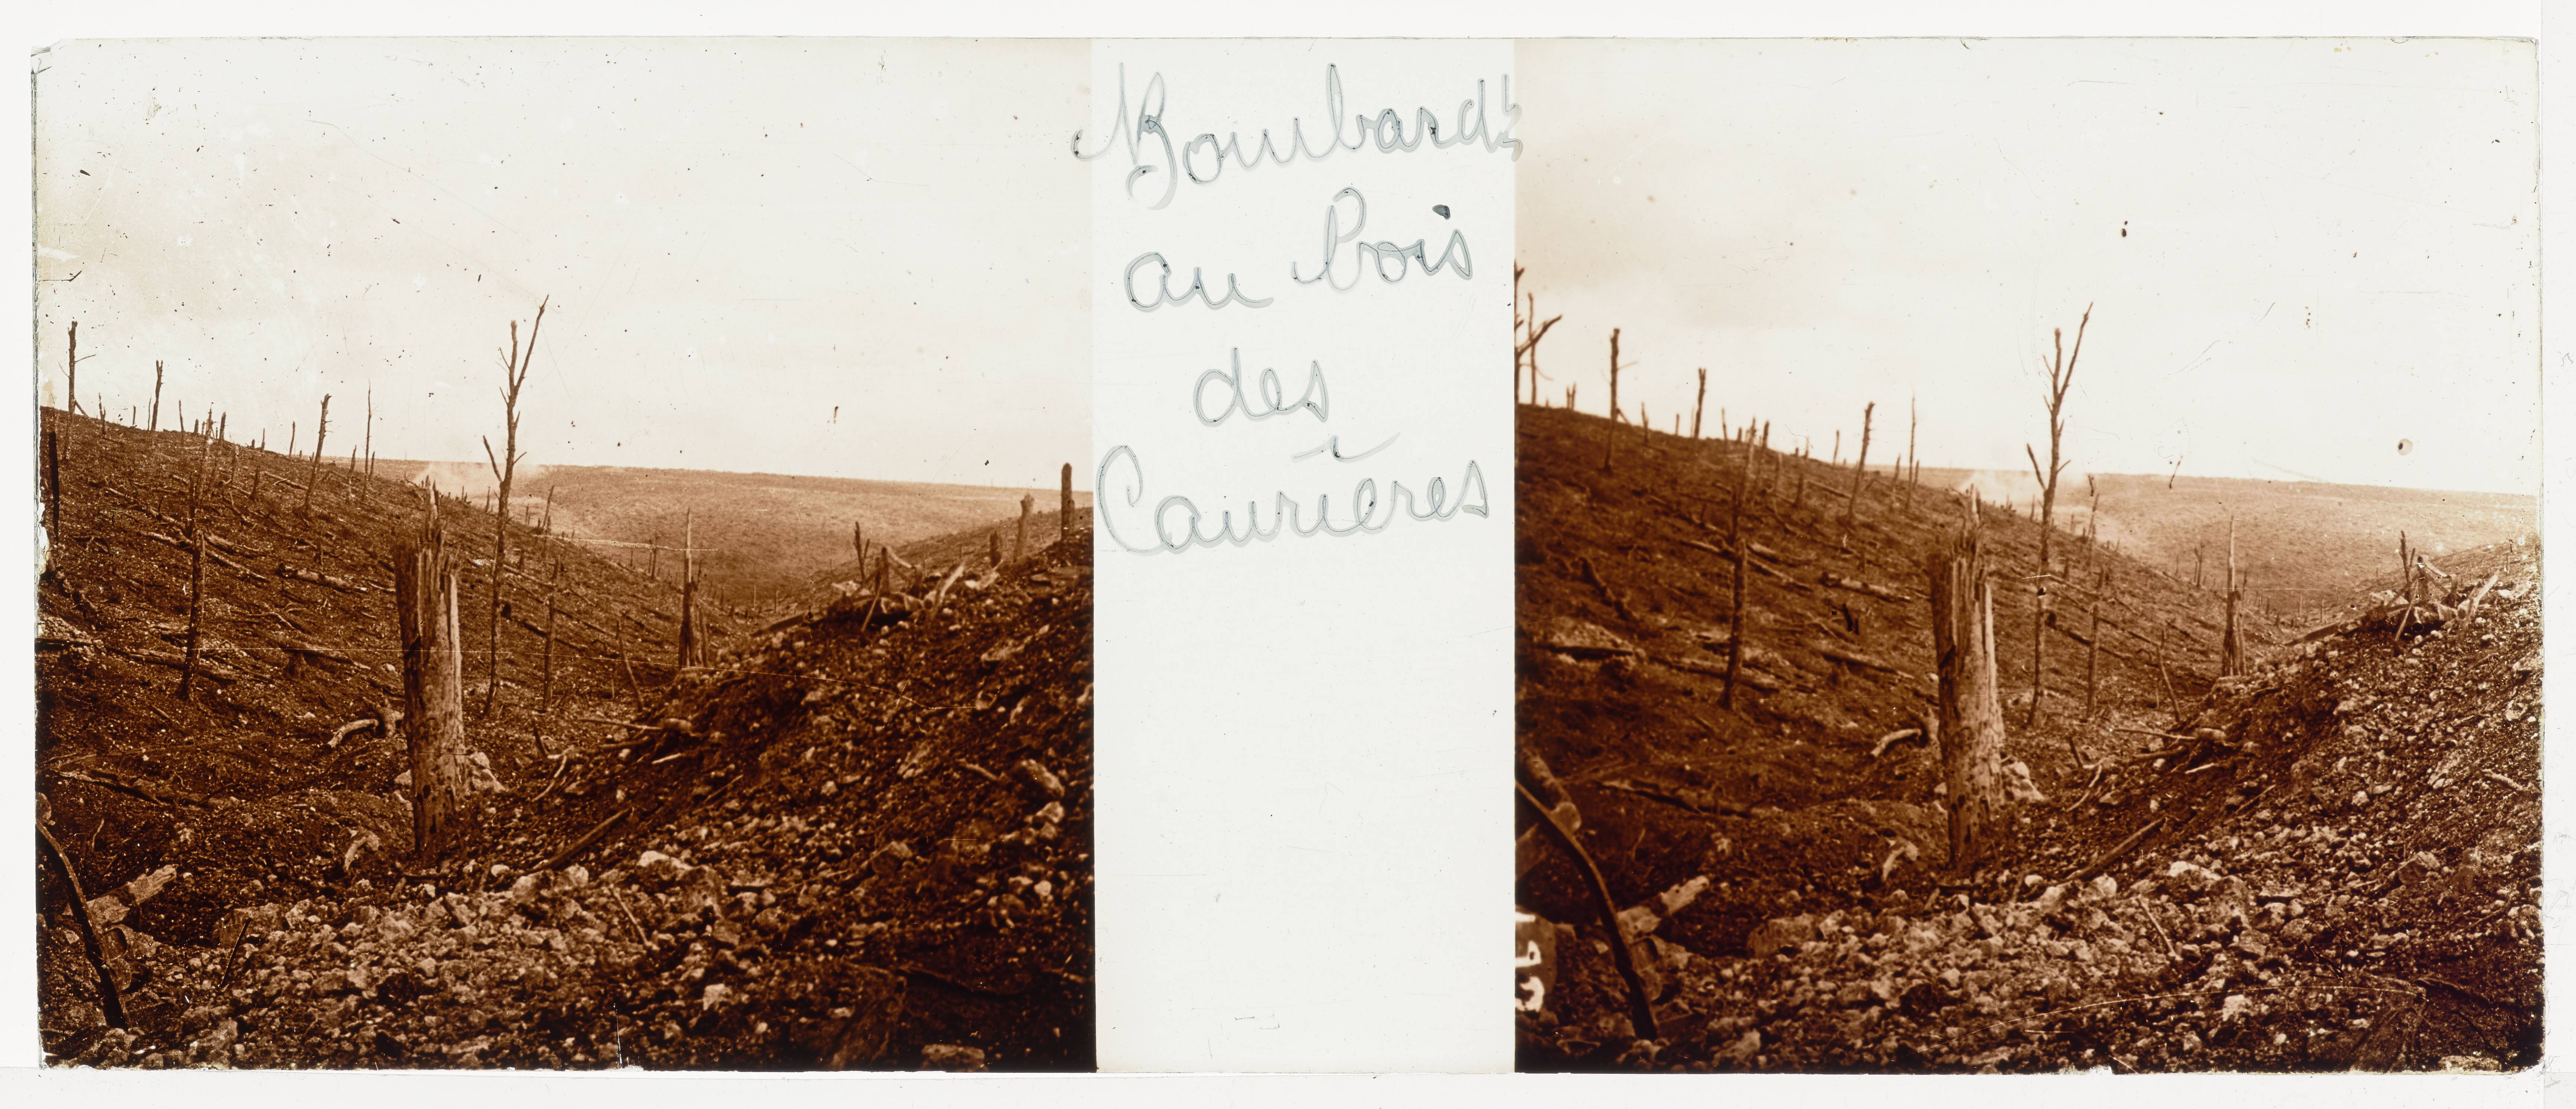 Bombardt
au bois
des
Caurières